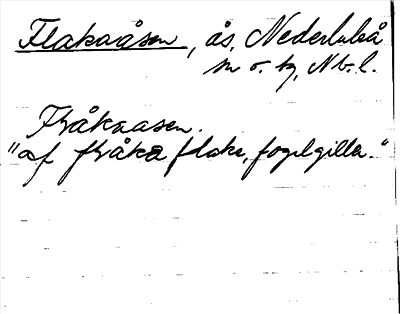 Flakaåsen, ås, Nederluleå
sn o. tg, Nb. l.
Fråkaasen.
"af fråka flake, fogelgiller."